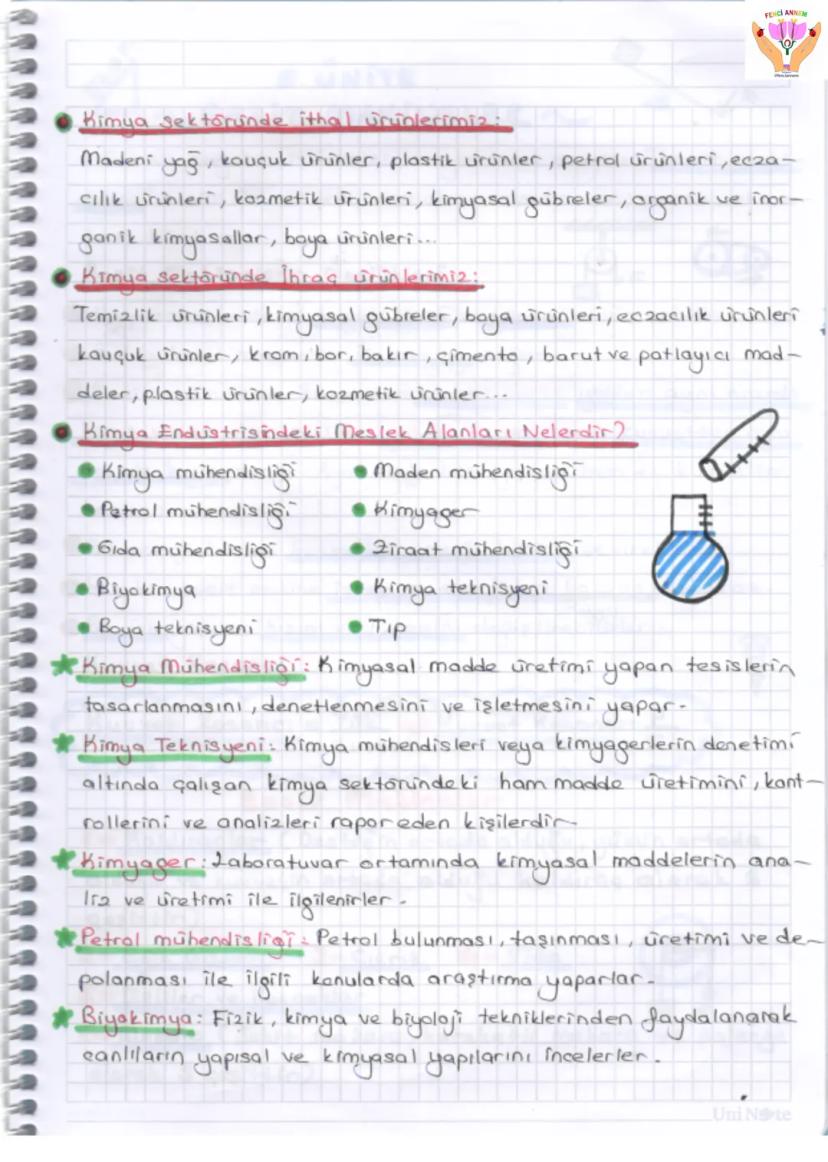 FENCİ ANNEM
Kimya sektöründe ithal ürünlerimiz:
Madeni yağ, kauçuk ürünler, plastik ürünler, petrol ürünleri, ecza-
cılık ürünleri, kozmetik ürünleri, kimyasal gübreler, organik ve inor-
ganik kimyasallar, boya ürünleri...
Kimya sektöründe İhraç ürünlerimiz:
Temizlik ürünleri, kimyasal gübreler, boya ürünleri, eczacılık ürünleri
kauçuk ürünler, krom, bor, bakır, çimento, barut ve patlayıcı mad-
deler, plastik ürünler, kozmetik ürünler...
Kimya Endüstrisindeki Meslek Alanları Nelerdir?
Kimya mühendisliği
Maden mühendisliği
Petrol mühendisliği
Kimyager
Gıda mühendisliği
Ziraat mühendisliği
Biyokimya
Kimya teknisyeni
Boya teknisyeni
Tıp
Kimya Mühendisliği: Kimyasal madde üretimi yapan tesislerin
tasarlanmasını, denetlenmesini ve işletmesini yapar.
Kimya Teknisyeni: Kimya mühendisleri veya kimyagerlerin denetimi
altında çalışan kimya sektöründeki ham madde üretimini, kont-
rollerini ve analizleri rapor eden kişilerdir.
Kimyager: Laboratuvar ortamında kimyasal maddelerin ana-
liz ve üretimi ile ilgilenirler.
Petrol mühendisliği: Petrol bulunması, taşınması, üretimi ve de-
polanması ile ilgili konularda araştırma yaparlar.
Biyokimya: Fizik, kimya ve biyoloji tekniklerinden faydalanarak
canlıların yapısal ve kimyasal yapılarını incelerler.
Uni Note